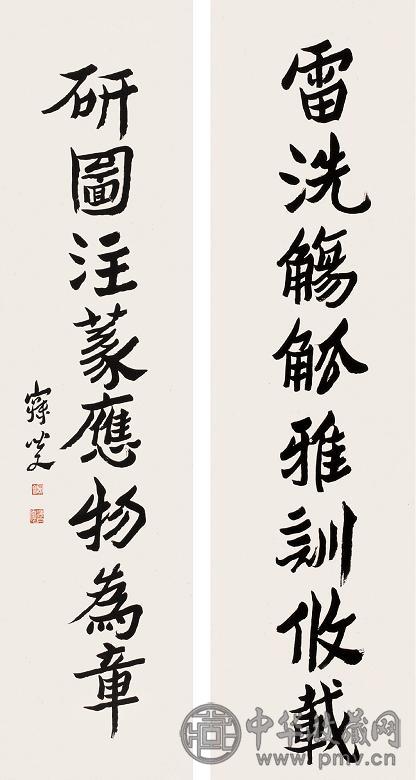 雷洗觴觚雅訓攸載
研圖注篆應物為章
寐叟
中华收藏网
www.pmv.cn